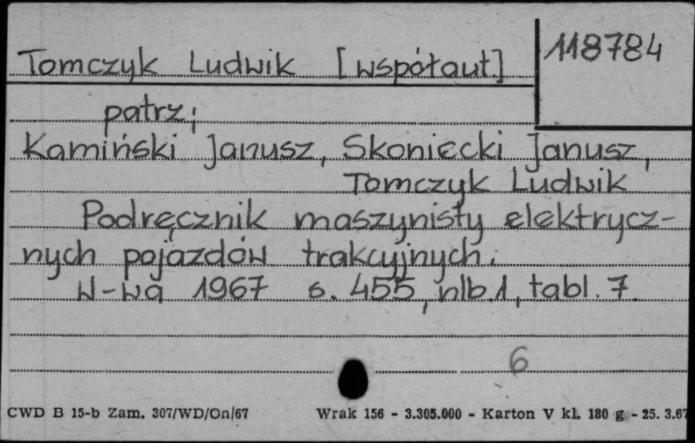 Tomczyk Ludwik [współaut]
118784
patrz;
Kamiński Janusz, Skoniecki Janusz,
Tomczyk Ludwik
Podręcznik maszynisty elektrycz-
nych pojazdów trakcyjnych.
W-wa 1967 s. 455, nlb.1, tabl. 7.
6
CWD B 15-b Zam. 307/WD/On/67 Wrak 156 - 3.305.000 - Karton V kl. 180 g - 25. 3.67